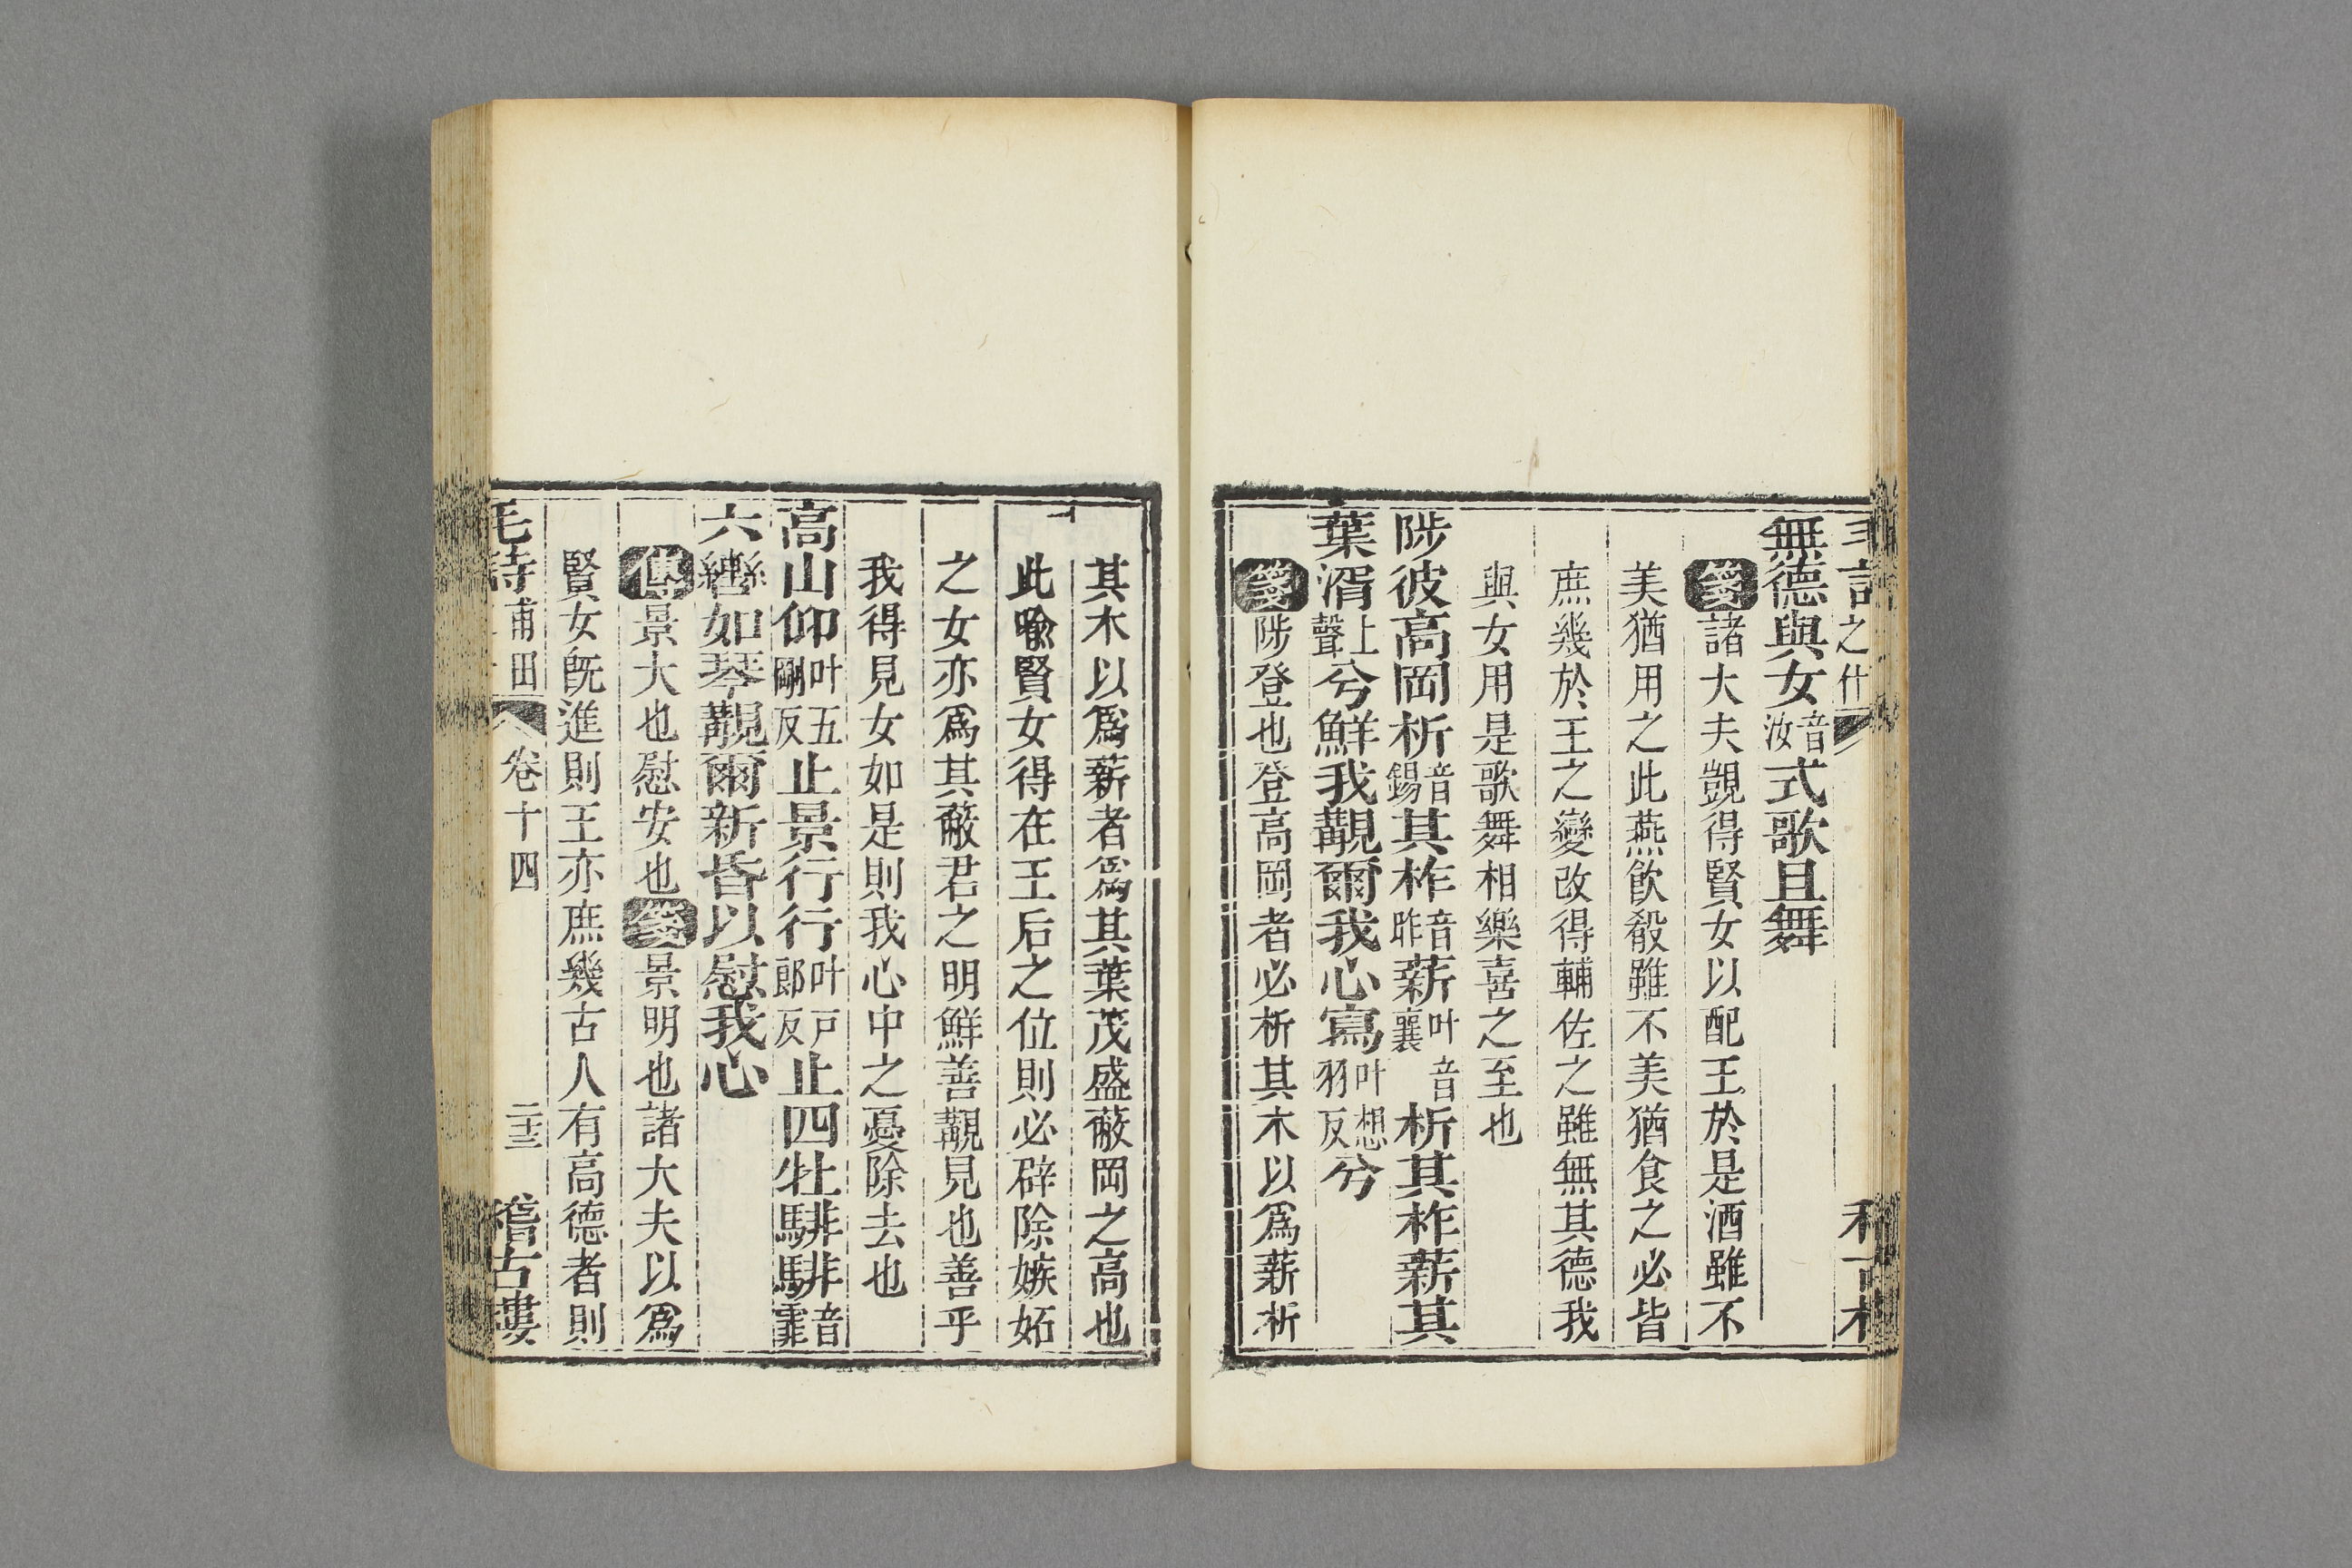 之什
無德與女音汝式歌且舞
箋諸大夫覬得賢女以配王於是酒雖不
美猶用之此燕飲殽雖不美猶食之必皆
庶幾於王之變改得輔佐之雖無其德我
與女用是歌舞相樂喜之至也
陟彼高岡析音錫其柞音昨薪叶音襄析其柞薪其
葉湑上聲兮鮮我覯爾我心寫叶想羽反兮
箋陟登也登高岡者必析其木以爲薪析
其木以爲薪者爲其葉茂盛蔽岡之高也
此喻賢女得在王后之位則必辟除嫉妬
之女亦爲其蔽君之明鮮善覯見也善乎
我得見女如是則我心中之憂除去也
高山仰叶五剛反止景行行叶戸郎反止四牡騑騑音霏
六轡如琴覯爾新昏以慰我心
傳景大也慰安也箋景明也諸大夫以爲
賢女旣進則王亦庶幾古人有高德者則
毛詩甫田 卷十四 二十三 稽古樓